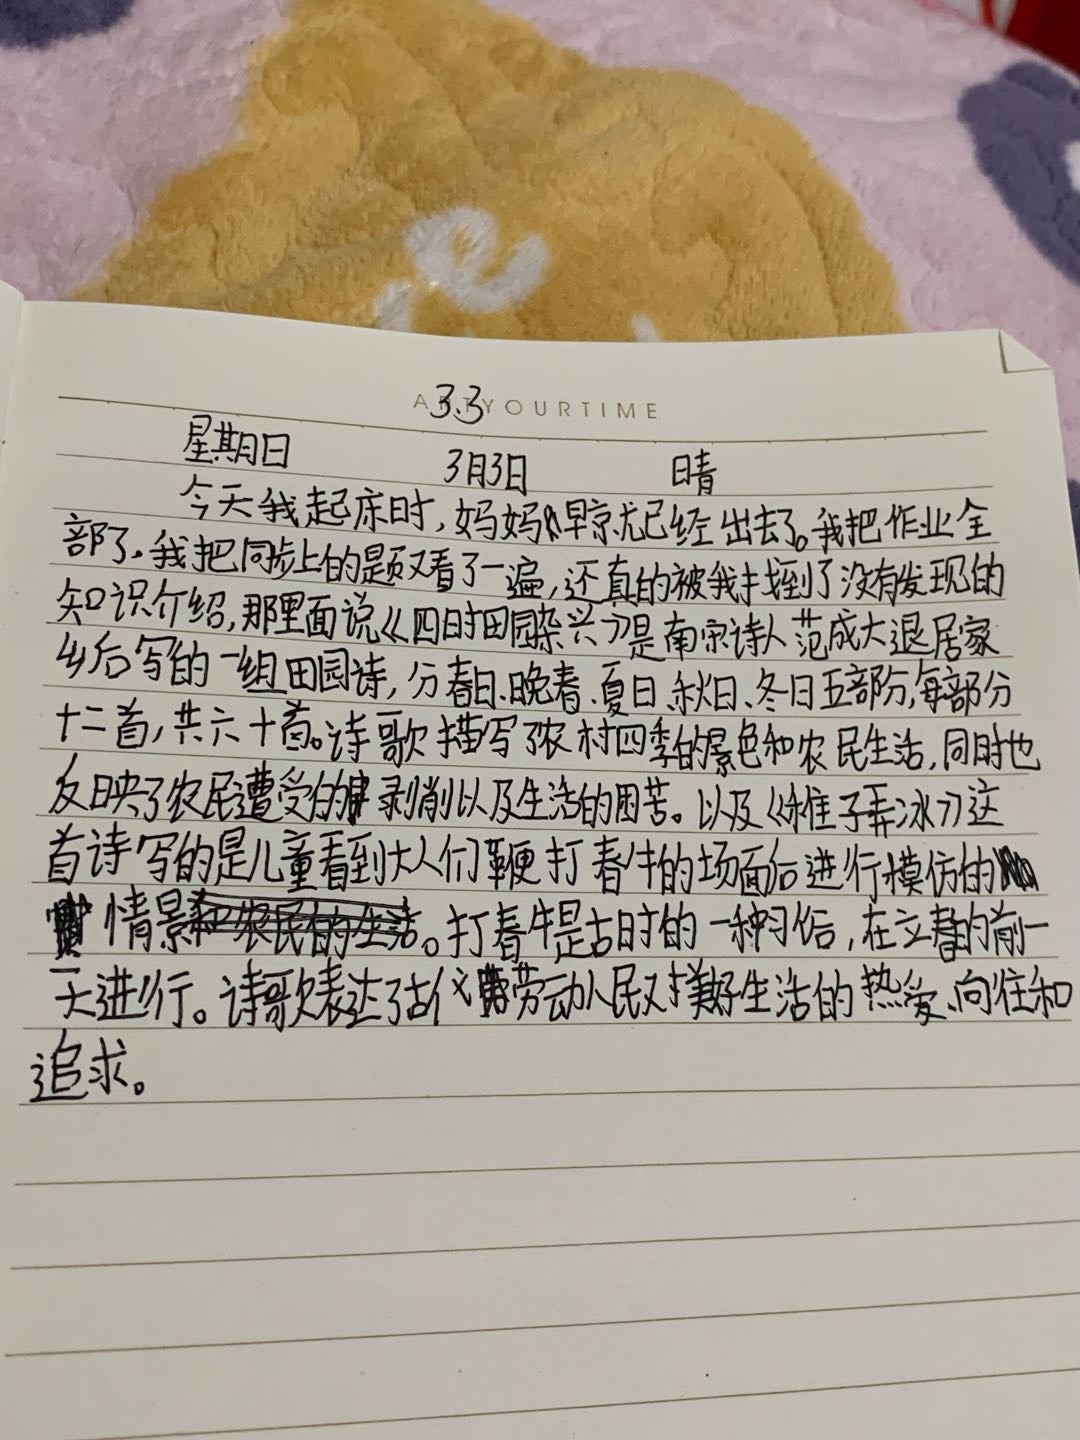 3.3
ARTYOURTIME
星期日 3月3日 晴
今天我起床时,妈妈早就已经出去了。我把作业全
部了,我把同步上的题又看了一遍,还真的被我找到了没有发现的
知识介绍,那里面说《四时田园杂兴》是南宋诗人范成大退居家
乡后写的一组田园诗,分春日、晚春、夏日、秋日、冬日五部分,每部分
十二首,共六十首。诗歌描写了农村四季的景色和农民生活,同时也
反映了农民遭受的剥削以及生活的困苦。以及《稚子弄冰》这
首诗写的是儿童看到大人们鞭打春牛的场面后进行模仿的
情景和农民的生活。打春牛是古时的一种习俗,在立春的前一
天进行。诗歌表达了古代劳动人民对美好生活的热爱、向往和
追求。